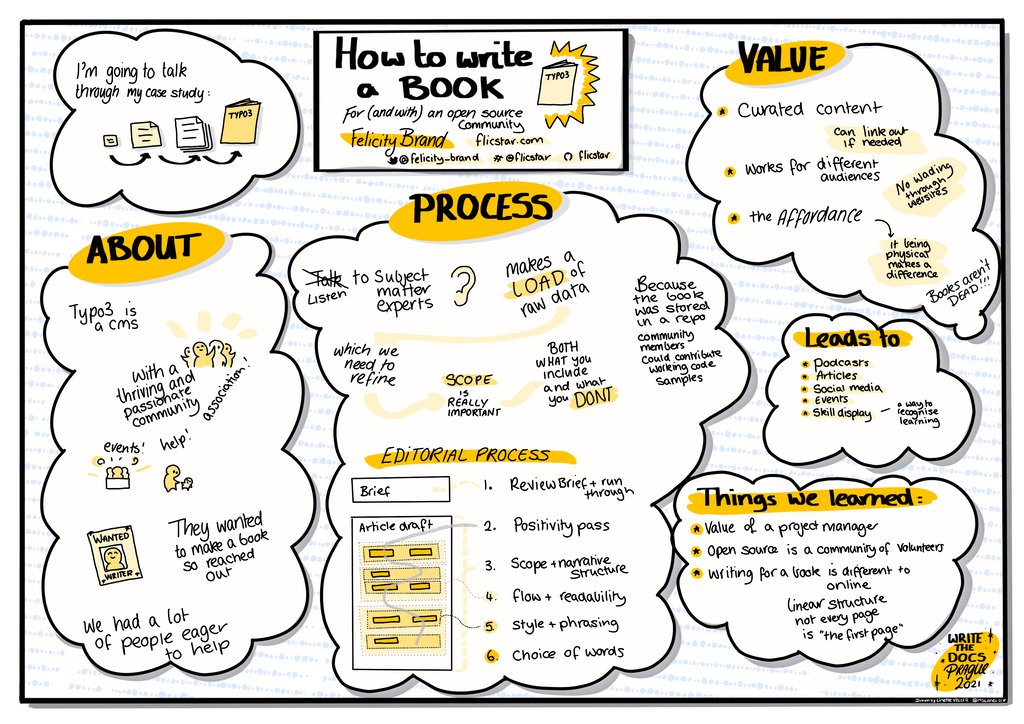 I'm going to talk
through my case study:
TYPO3
How to write
a BOOK
TYPO3
For (and with) an open source
Community
Felicity Brand
flicstar.com
@felicity_brand
@flicstar
flicstar
ABOUT
Typo3 is
a cms
with a
thriving and
passionate
community
association!
events!
help!
WANTED
WRITER
They wanted
to make a book
so reached
out
We had a lot
of people eager
to help
PROCESS
Talk to Subject
Listen matter
experts
makes a
LOAD of
raw data
which we
need to
refine
SCOPE
IS
REALLY
IMPORTANT
BOTH
WHAT YOU
INCLUDE
and what
you DONT
Because
the book
was stored
in a repo
community
members
Could contribute
working code
samples
EDITORIAL PROCESS
Brief
Article draft
1. Review Brief + run
through
2. Positivity pass
3. Scope + narrative
structure
4. flow + readability
5. style + phrasing
6. Choice of words
VALUE
Curated content
Can link out
if needed
Works for different
audiences
No wading
through
websites
the AFFORDANCE
it being
physical
makes a
difference
Books aren't
DEAD!!!
Leads to
Podcasts
Articles
Social media
Events
Skill display – a way to
recognise
learning
Things we learned:
Value of a project manager
Open source is a community of volunteers
Writing for a book is different to
online
linear structure
not every page
is "the first page"
WRITE
THE
DOCS
Prague
2021